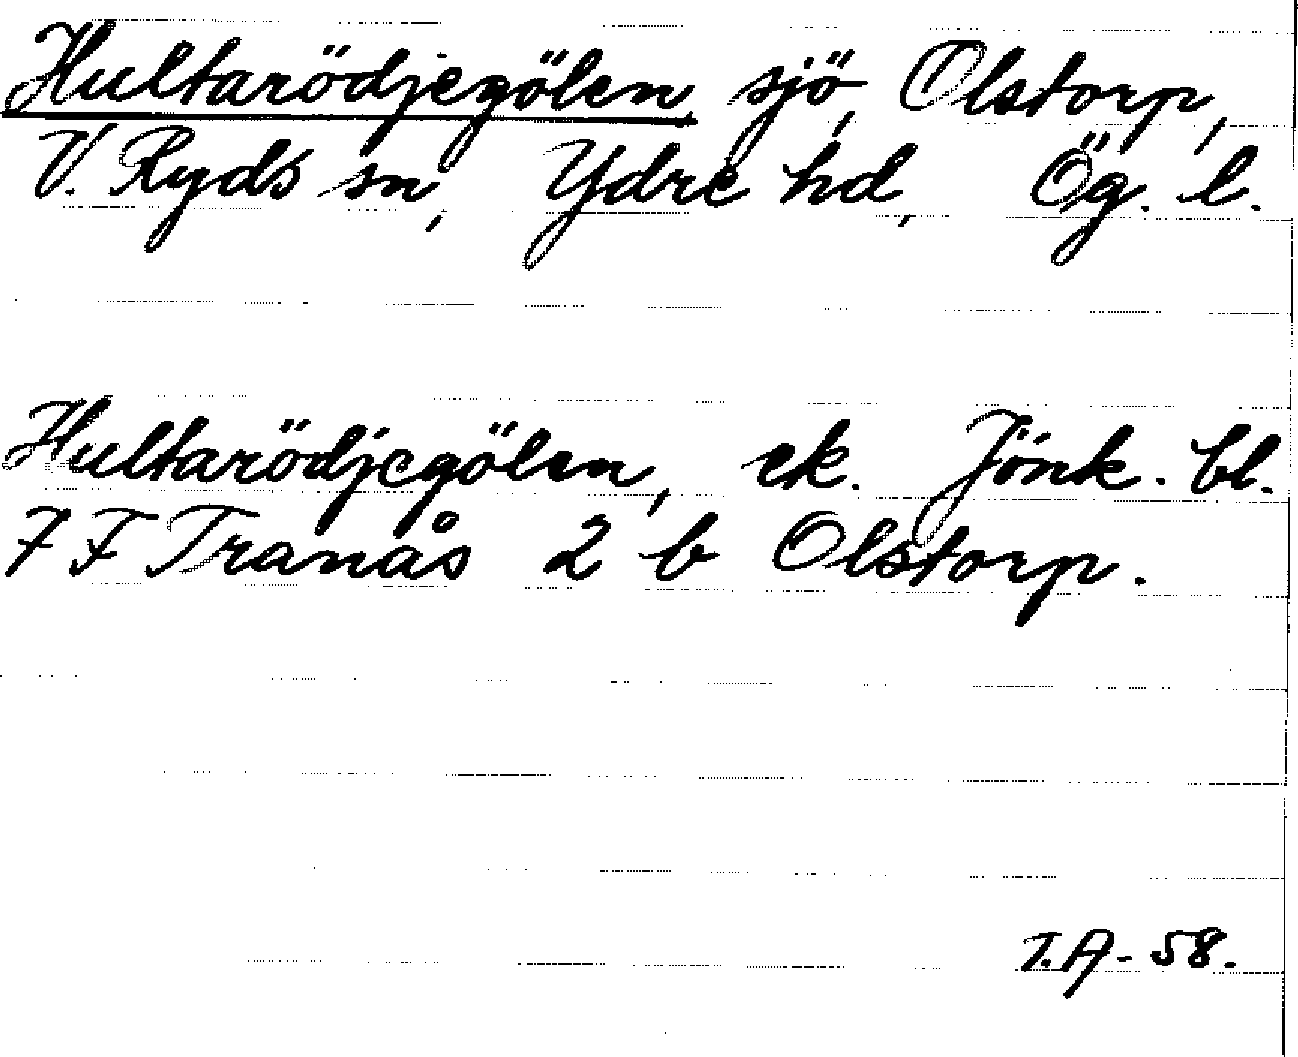 Hultarödjegölen, sjö, Olstorp,
V. Ryds sn, Ydre hd, Ög. l.
Hultarödjegölen, ek. Jönk. bl.
7 F Tranås 2 b Olstorp.
T.A-58.